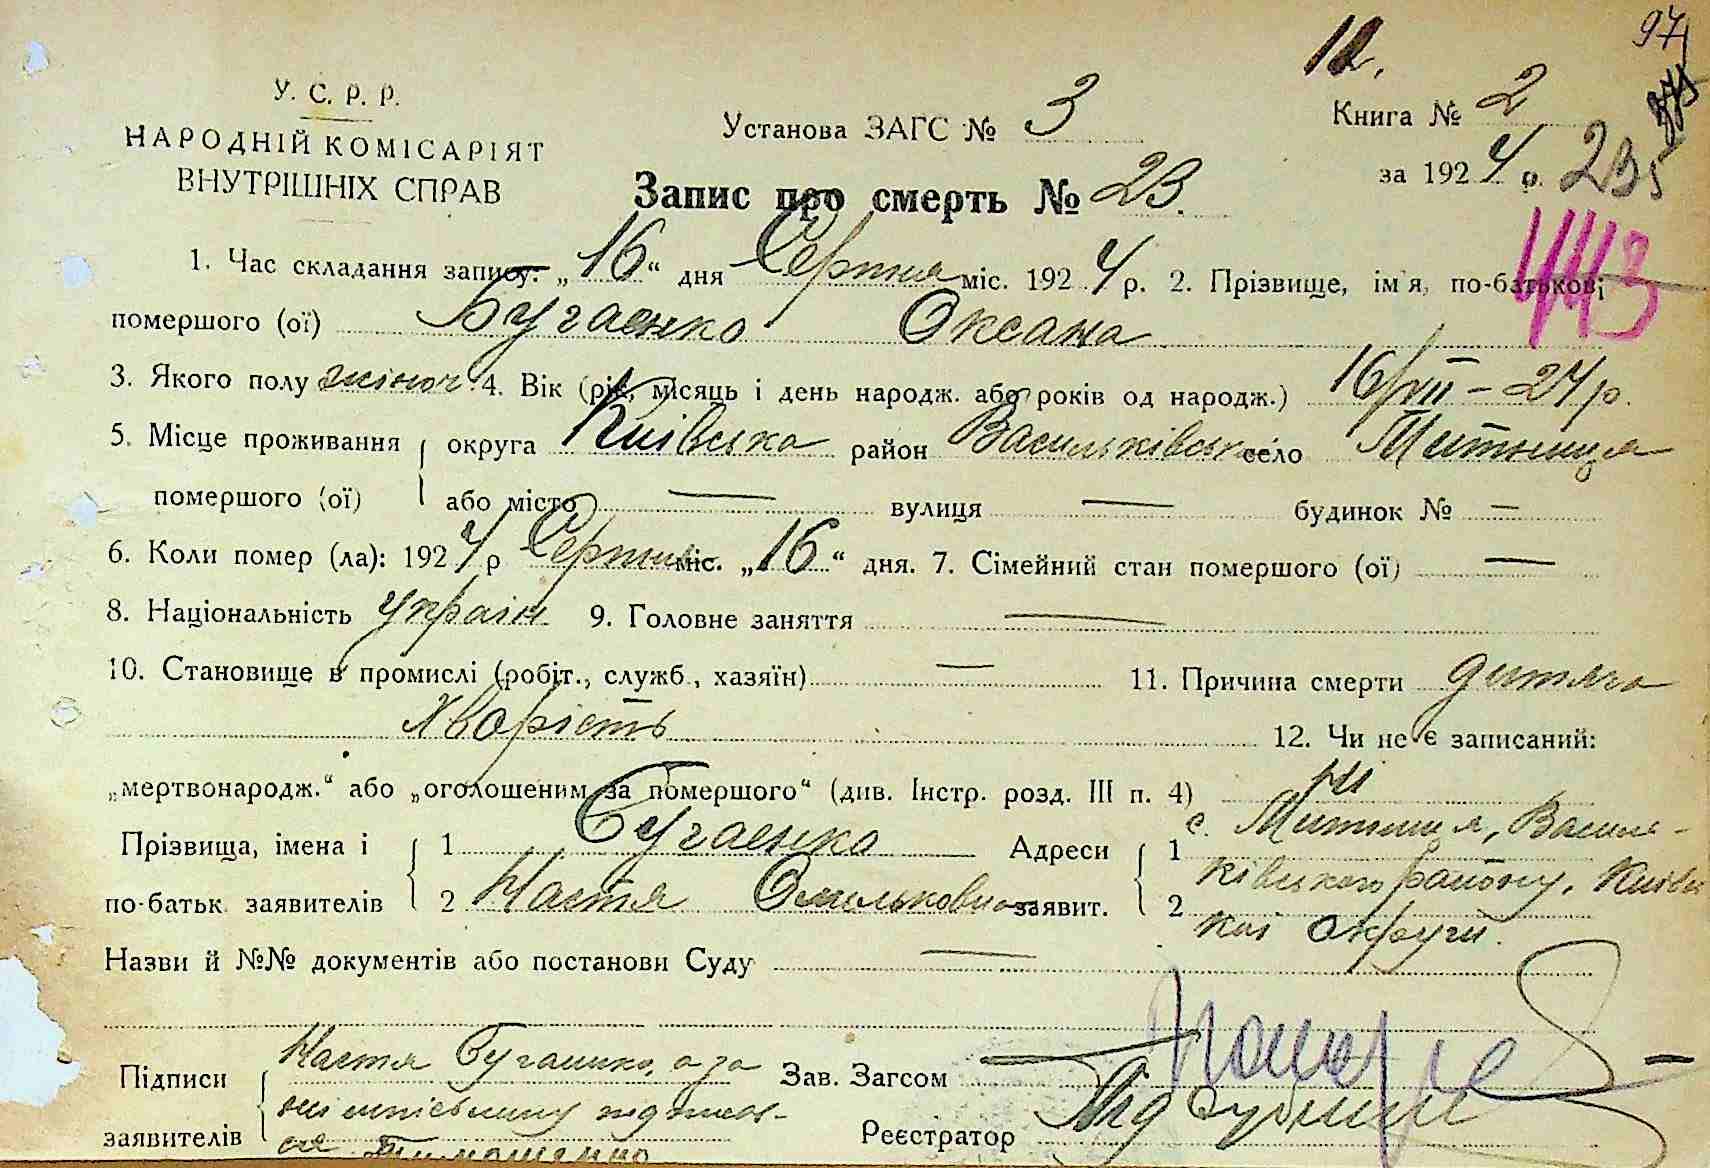 97
12.
375
У. С. Р. Р.
НАРОДНІЙ КОМІСАРІЯТ
ВНУТРІШНІХ СПРАВ
Установа ЗАГС № 3
Книга № 2
за 1924 р. 235
Запис про смерть № 23.
443
1. Час складання запису: „16“ дня Серпня міс. 1924 р. 2. Прізвище, ім'я, по-батькові
помершого (ої) Бугаенко Оксана
3. Якого полу жіноч. 4. Вік (рік, місяць і день народж. або років од народж.) 16/VII – 24 р.
5. Місце проживання округа Київська район Васильківськ село Митниця
помершого (ої) або місто — вулиця — будинок № —
6. Коли помер (ла): 1924 р Серпня міс. „16“ дня. 7. Сімейний стан помершого (ої) —
8. Національність україн. 9. Головне заняття —
10. Становище в промислі (робіт., служб., хазяїн) — 11. Причина смерти дитяча
хворість 12. Чи не є записаний:
„мертвонародж.“ або „оголошеним за помершого“ (див. Інстр. розд. III п. 4) ні
Прізвища, імена і 1 Бугаенко Адреси 1 с. Митниця, Василь-
ківського району, Київсь
по-батьк. заявителів 2 Настя Омельковна заявит. 2
кої округи.
Назви й №№ документів або постанови Суду —
Підписи Настя Бугаенко, а за Зав. Загсом
заявителів підписав- Реєстратор
ся Тимошенко